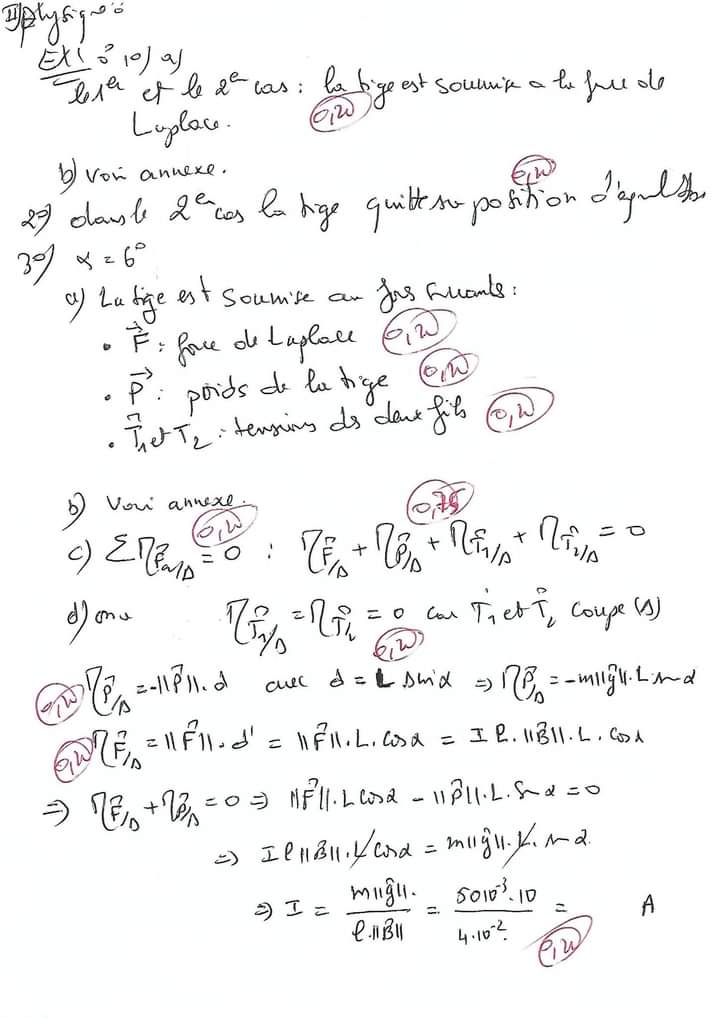 II) Physique :
EX1 : 1°) a)
le 1er et le 2e cas : la tige est soumise a la force de
Laplace.
0,25
b) voir annexe.
0,25
2°) dans le 2e cas la tige quitte sa position d'équilibre
3°) α = 6°
a) La tige est soumise au forces suivantes :
• F⃗ : force de Laplace 0,25
• P⃗ : poids de la tige 0,25
• T⃗₁ et T₂ : tensions des deux fils 0,25
b) Voir annexe.
0,25 0,75
c) Σ M F⃗a/Δ = 0 : M F⃗/Δ + M P⃗/Δ + M T⃗₁/Δ + M T⃗₂/Δ = 0
d) on a M T⃗₁/Δ = M T⃗₂ = 0 car T⃗₁ et T⃗₂ coupe (Δ)
0,25
0,25 M P⃗/Δ = -||P⃗||. d avec d = L sin α ⇒ M P⃗/Δ = -m||g⃗||. L. sin α
0,25 M F⃗/Δ = ||F⃗||. d' = ||F⃗||. L. cos α = I ℓ. ||B⃗||. L. cos α
⇒ M F⃗/Δ + M P⃗/Δ = 0 ⇒ ||F⃗||. L cos α - ||P⃗||. L. sin α = 0
⇒ I ℓ ||B⃗||. L cos α = m||g⃗||. L. sin α
⇒ I = m||g⃗||. / ℓ.||B⃗|| = 50 10⁻³. 10 / 4. 10⁻². = A
0,25